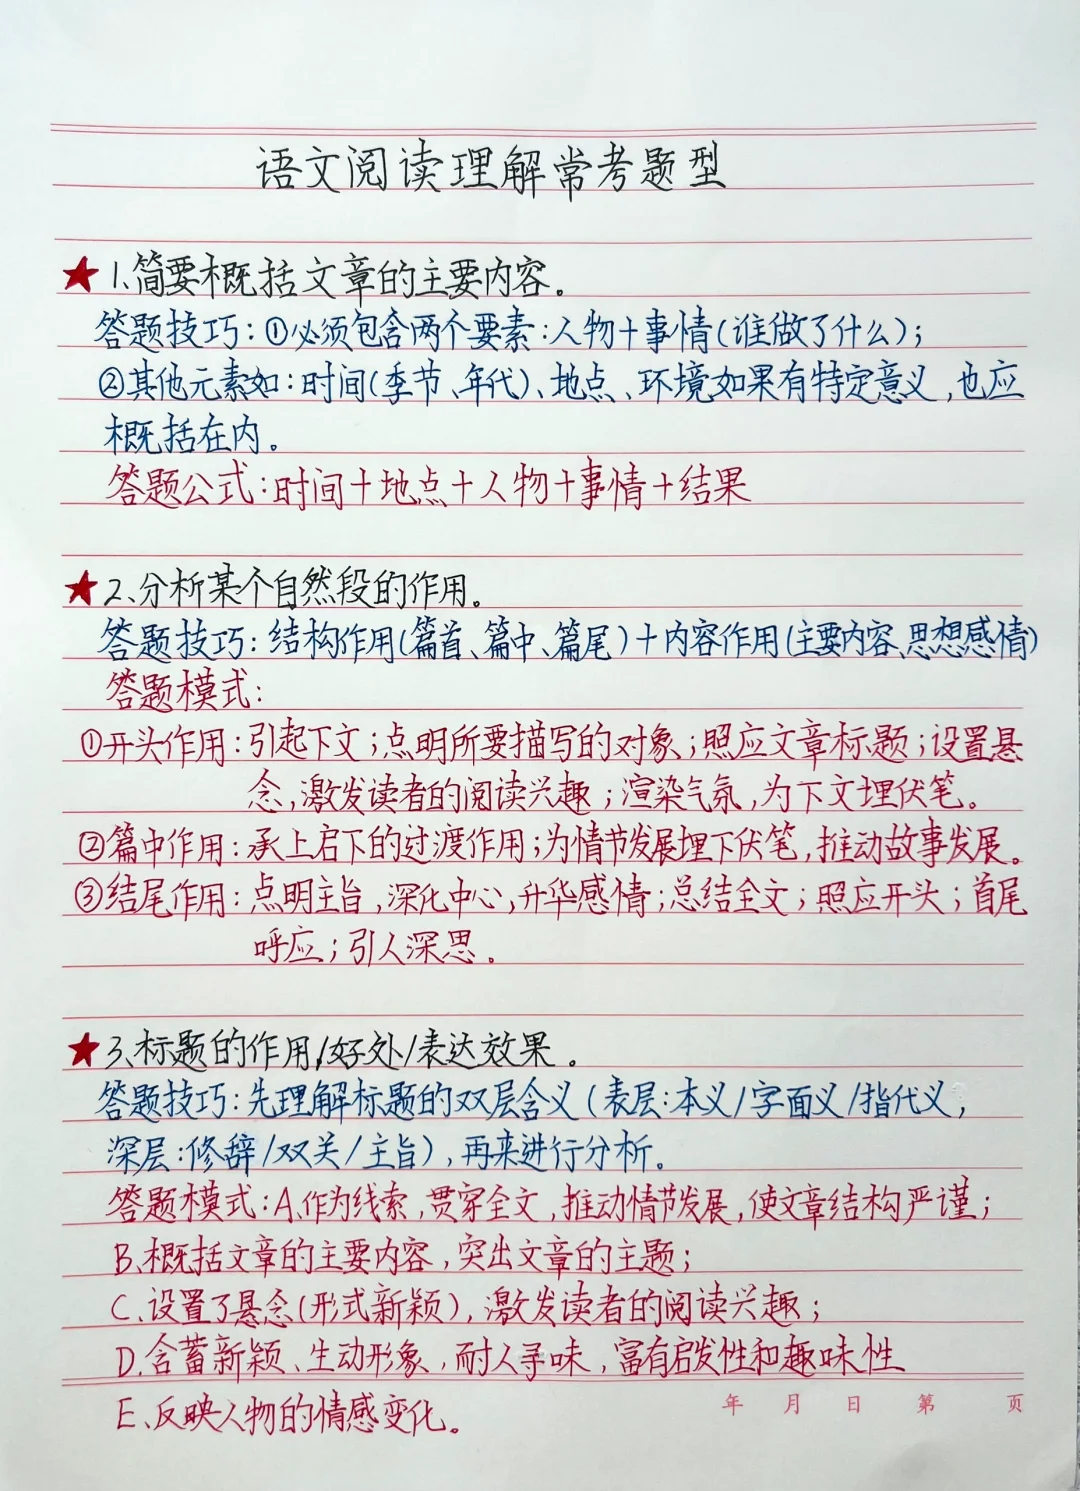 语文阅读理解常考题型
★1、简要概括文章的主要内容。
答题技巧:①必须包含两个要素:人物+事情(谁做了什么);
②其他元素如:时间(季节、年代)、地点、环境如果有特定意义,也应
概括在内。
答题公式:时间+地点+人物+事情+结果
★2、分析某个自然段的作用。
答题技巧:结构作用(篇首、篇中、篇尾)+内容作用(主要内容、思想感情)
答题模式:
①开头作用:引起下文;点明所要描写的对象;照应文章标题;设置悬
念,激发读者的阅读兴趣;渲染气氛,为下文埋伏笔。
②篇中作用:承上启下的过渡作用;为情节发展埋下伏笔,推动故事发展。
③结尾作用:点明主旨,深化中心,升华感情;总结全文;照应开头;首尾
呼应;引人深思。
★3、标题的作用/好处/表达效果。
答题技巧:先理解标题的双层含义(表层:本义/字面义/指代义,
深层:修辞/双关/主旨),再来进行分析。
答题模式:A、作为线索,贯穿全文,推动情节发展,使文章结构严谨;
B、概括文章的主要内容,突出文章的主题;
C、设置了悬念(形式新颖),激发读者的阅读兴趣;
D、含蓄新颖、生动形象,耐人寻味,富有启发性和趣味性
E、反映人物的情感变化。
年 月 日 第 页